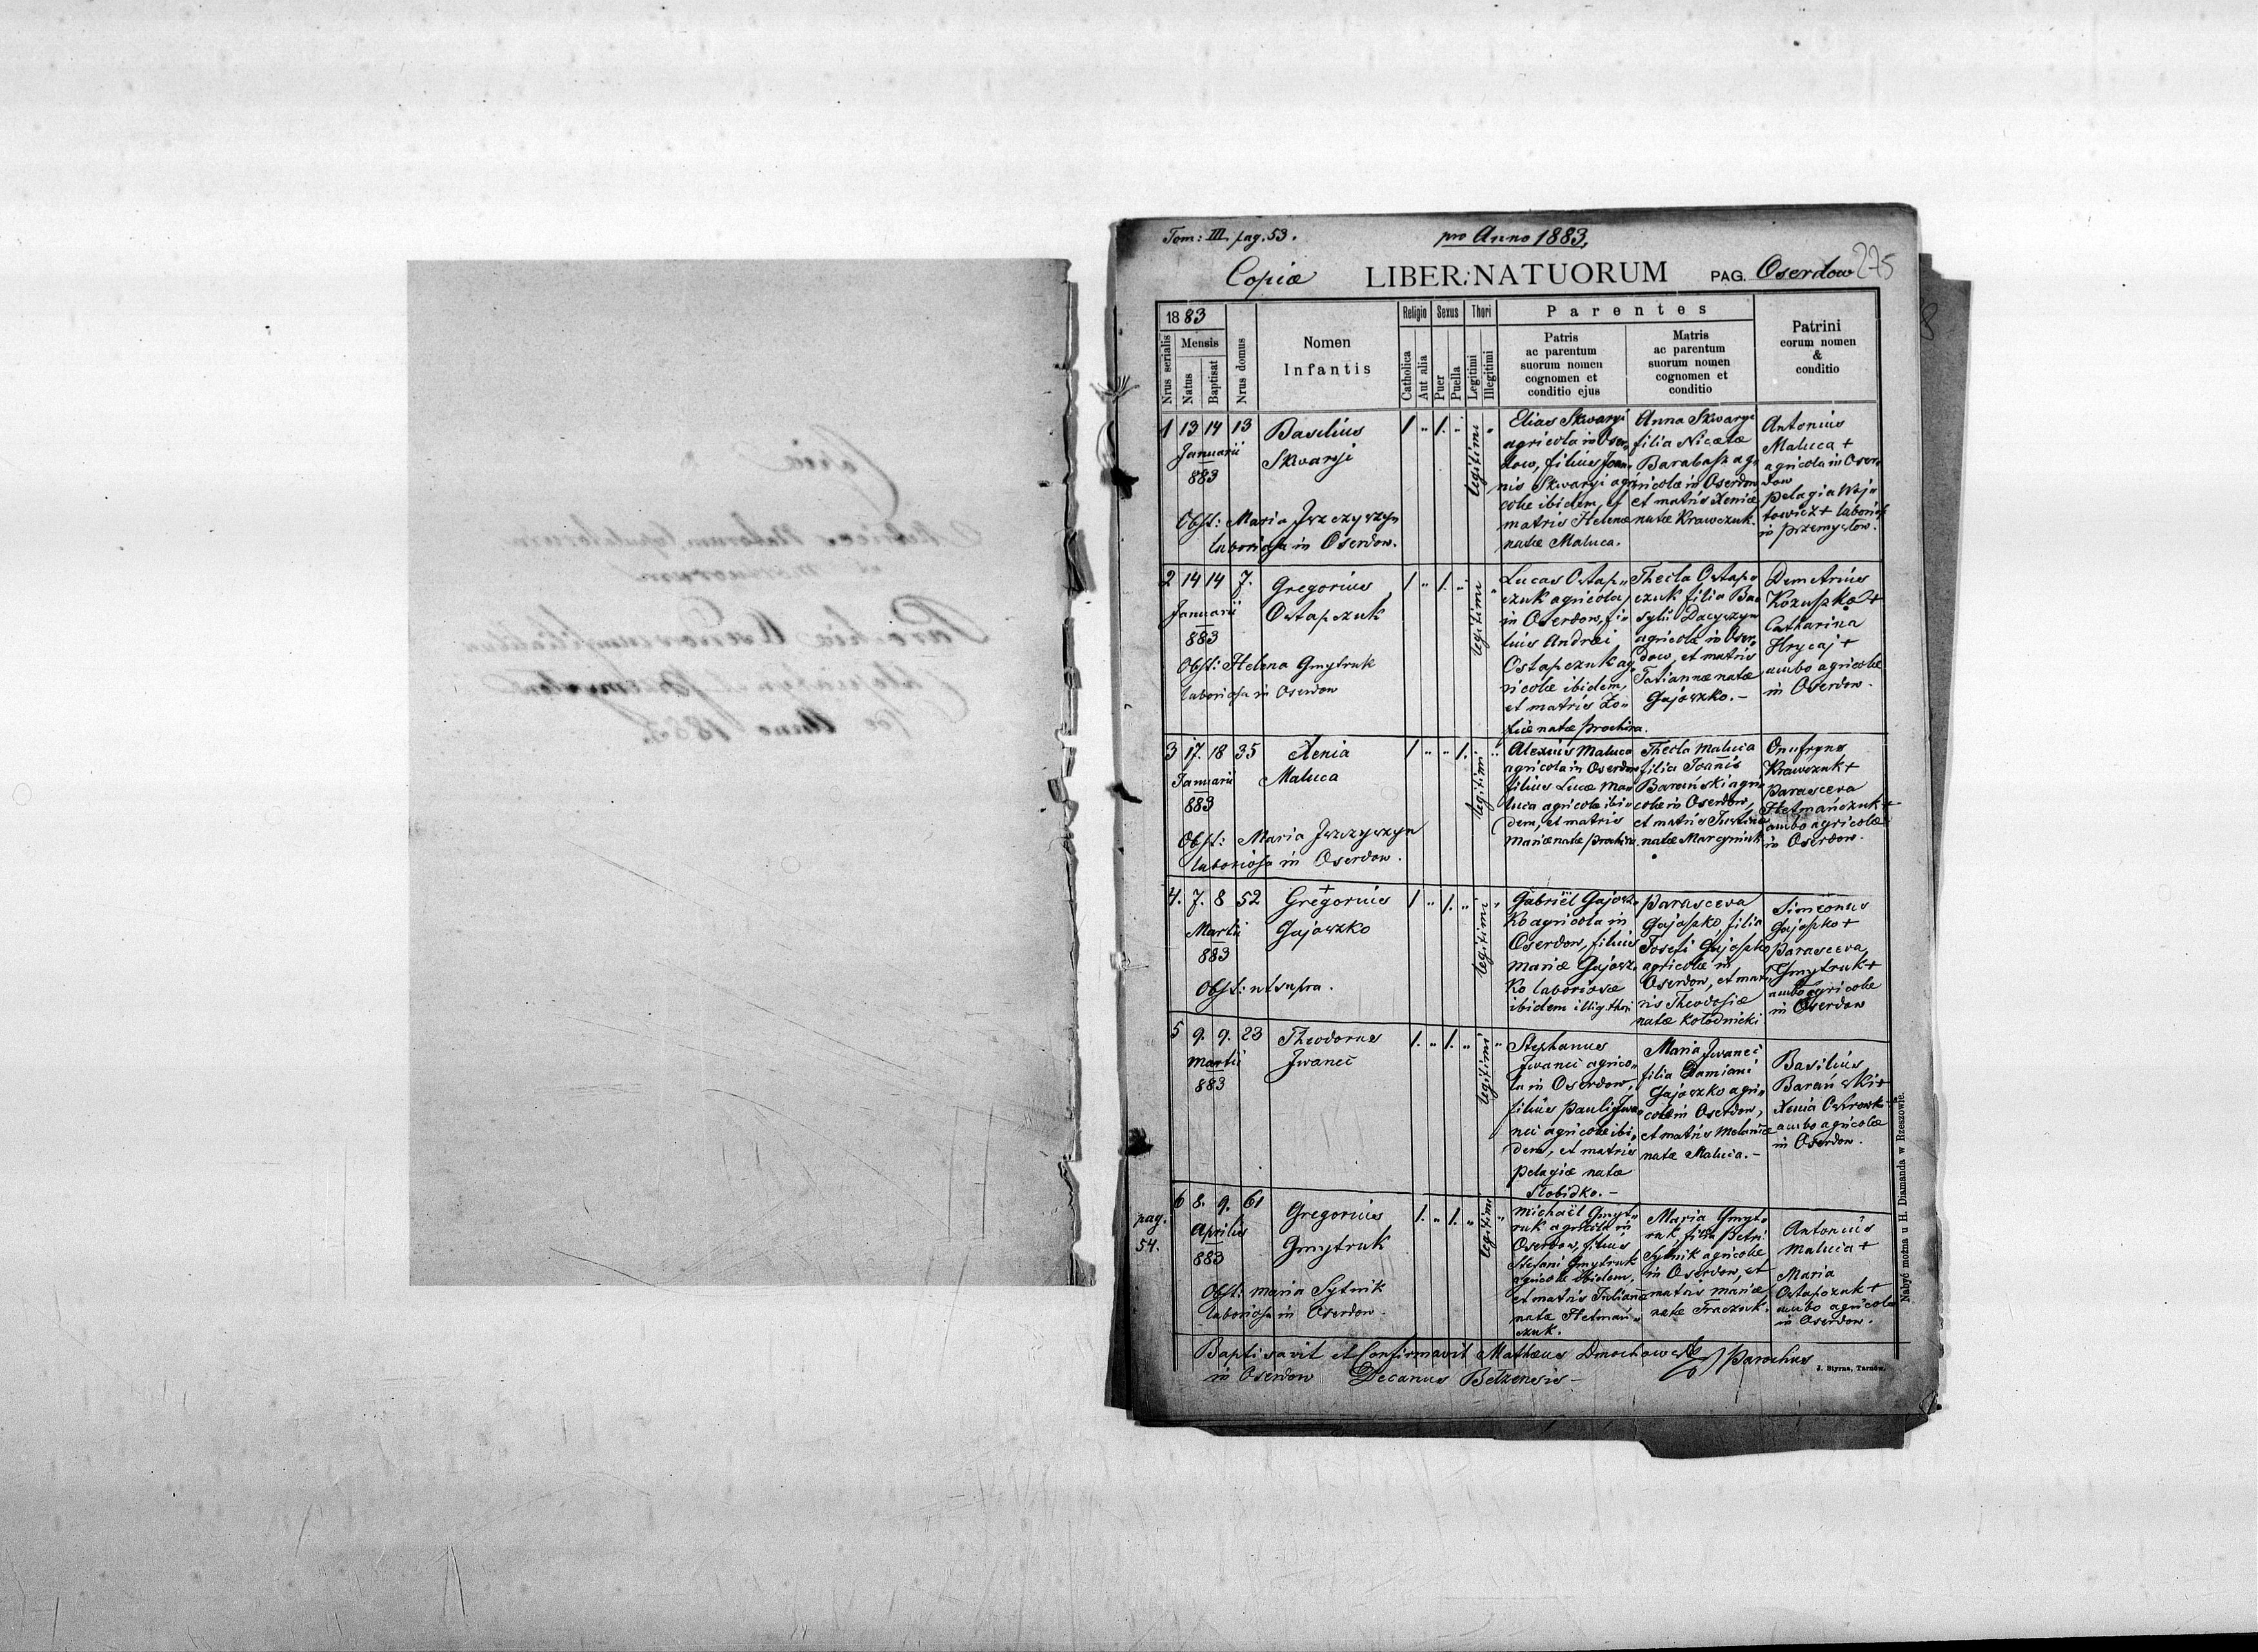 Tom: III. pag. 53.
pro Anno 1883.
275
Copiæ LIBER NATUORUM PAG. Oserdow
1883
Nrus serialis
Mensis
Natus
Baptisat
Nrus domus
Nomen
Infantis
Religio
Catholica
Aut alia
Sexus
Puer
Puella
Thori
Legitimi
Illegitimi
Parentes
Patris
ac parentum
suorum nomen
cognomen et
conditio ejus
Matris
ac parentum
suorum nomen
cognomen et
conditio
Patrini
eorum nomen
&
conditio
1 13 14 13
Januarii
883
Basilius
Skwaryi
Obst: Maria Jwzczyszyn
laboriosa in Oserdow.
1 " 1. "
legitimi "
Elias Skwaryi
agricola in Oser„
dow, filius Joan„
nis Skwaryi agri
colæ ibidem, et
matris Helenæ
natæ Maluca.
Anna Skwaryi
filia Nicetæ
Barabasz ag„
ricolæ in Oserdow
et matris Xeniæ
natæ Krawczuk.
Antonius
Maluca +
agricola in Oser„
dow
Pelagia Woj„
towicz + laboriosa
in Przemysłow.
2 14 14 7.
Januarii
883
Gregorius
Ostapczuk
Obst: Helena Gmytruk
laboriosa in Oserdow
1 " 1. "
legitimi "
Lucas Ostap„
czuk agricola
in Oserdow, fi„
lius Andrei
Ostapczuk ag„
ricolæ ibidem,
et matris Zo„
fiæ natæ Prochira.
Thecla Ostap„
czuk filia Ba„
sylii Dacyszyn
agricolæ in Oser„
dow, et matris
Tatiannæ natæ
Gajoszko. -
Demetrius
Kozuszko +
Catharina
Hrycaj +
ambo agricolæ
in Oserdow.
3 17. 18 35
Januarii
883
Xenia
Maluca
Obst: Maria Jwzczyszyn
laboriosa in Oserdow.
1 " " 1.
legitimi "
Alexius Maluca
agricola in Oserdow
filius Lucæ Ma„
luca agricolæ ibi„
dem, et matris
Mariæ natæ Prochira.
Thecla Maluca
filia Joannis
Barański agri„
colæ in Oserdow,
et matris Justinæ
natæ Marcyniuk
Onufryus
Krawczuk +
Parasceva
Hetmańczuk +
ambo agricolæ
in Oserdow.
4. 7. 8 52
Martii
883
+
Gregorius
Gajoszko
Obst: ut supra.
1 " 1. "
legitimi "
Gabriël Gajosz„
ko agricola in
Oserdow, filius
Mariæ Gajosz„
ko laboriosæ
ibidem illig. thori
Parasceva
Gajoszko, filia
Josefi Gajoszko
agricolæ in
Oserdow, et mat„
ris Theodosiæ
natæ Kołodnicki
Simeonus
Gajoszko +
Parasceva
Gmytruk +
ambo agricolæ
in Oserdow
5 9. 9. 23
Martii
883
Theodorus
Jwanci
1. " 1. "
legitimi "
Stephanus
Jwanci agrico„
la in Oserdow,
filius Pauli Jwa„
nci agricolæ ibi„
dem, et matris
Pelagiæ natæ
Słobidko. -
Maria Jwanci
filia Damiani
Gajoszko agri„
colæ in Oserdow,
et matris Melaniæ
natæ Maluca. -
Basilius
Barański +
Xenia Ostrowsk +
ambo agricolæ
in Oserdow.
pag.
54.
6 8. 9. 61
Aprilis
883
Gregorius
Gmytruk
Obst: Maria Sytnik
laboriosa in Oserdow.
1. " 1. "
legitimi "
Michaël Gmyt„
ruk agricola in
Oserdow, filius
Stefani Gmytruk
agricolæ ibidem,
et matris Juliannæ
natæ Hetmań„
czuk.
Maria Gmyt„
ruk, filia Petri
Sytnik agricolæ
in Oserdow, et
matris Mariæ
natæ Traczuk.
Antonius
Maluca +
Maria
Ostapczuk +
ambo agricolæ
in Oserdow.
Baptisavit et Confirmavit Matheus Dmochowski Parochus
in Oserdow Decanus Bełzensis -
J. Styrna, Tarnów.
Nabyć można u H. Diamanda w Rzeszowie.